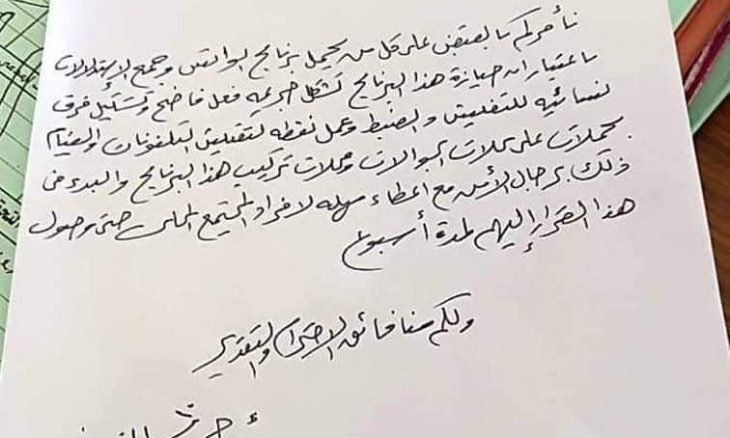 نأمركم بالقبض على كل من يحمل برنامج الواتس وجمع الاستدلالات
باعتبار ان حيازة هذا البرنامج تشكل جريمة فعل فاضح وتشكيل فرق
نسائيه للتفتيش والضبط وعمل نقطه لتفتيش التلفونات والقيام
بحملات على محلات الجوالات ومحلات تركيب هذا البرنامج والبدء في
ذلك برجال الأمن مع اعطاء مهله لافراد المجتمع المحلي حتى وصول
هذا القرار إليهم لمدة أسبوع
ولكم منا فائق الاحترام والتقدير